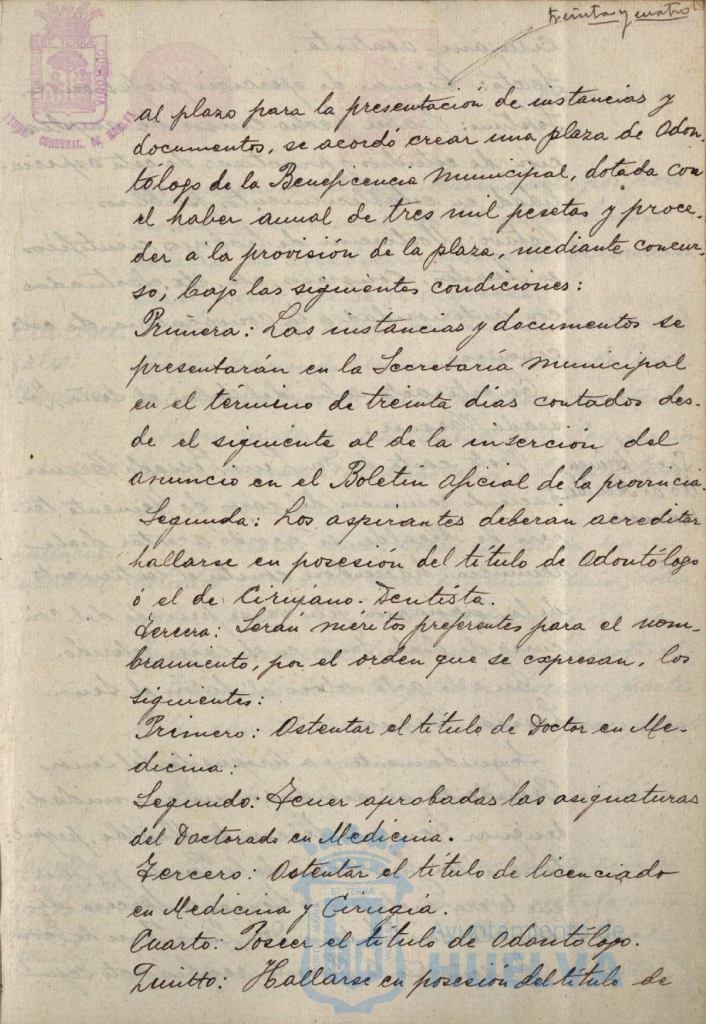 treinta y cuatro
AYUNT. CONSTNAL. DE HUELVA
al plazo para la presentación de instancias y
documentos, se acordó crear una plaza de Odon-
tólogo de la Beneficencia Municipal, dotada con
el haber anual de tres mil pesetas y proce-
der a la provisión de la plaza, mediante concur-
so, bajo las siguientes condiciones:
Primera: Las instancias y documentos se
presentarán en la Secretaría Municipal
en el término de treinta días contados des-
de el siguiente al de la inserción del
anuncio en el Boletín oficial de la provincia.
Segunda: Los aspirantes deberán acreditar
hallarse en posesión del título de Odontólogo
ó el de Cirujano-Dentista.
Tercera: Serán méritos preferentes para el nom-
bramiento, por el orden que se expresan, los
siguientes:
Primero: Ostentar el título de Doctor en Me-
dicina:
Segundo: Tener aprobadas las asignaturas
del Doctorado en Medicina.
Tercero: Ostentar el título de licenciado
en Medicina y Cirugía.
Cuarto: Poseer el título de Odontólogo.
Quinto: Hallarse en posesión del título de
Ayuntamiento de
HUELVA